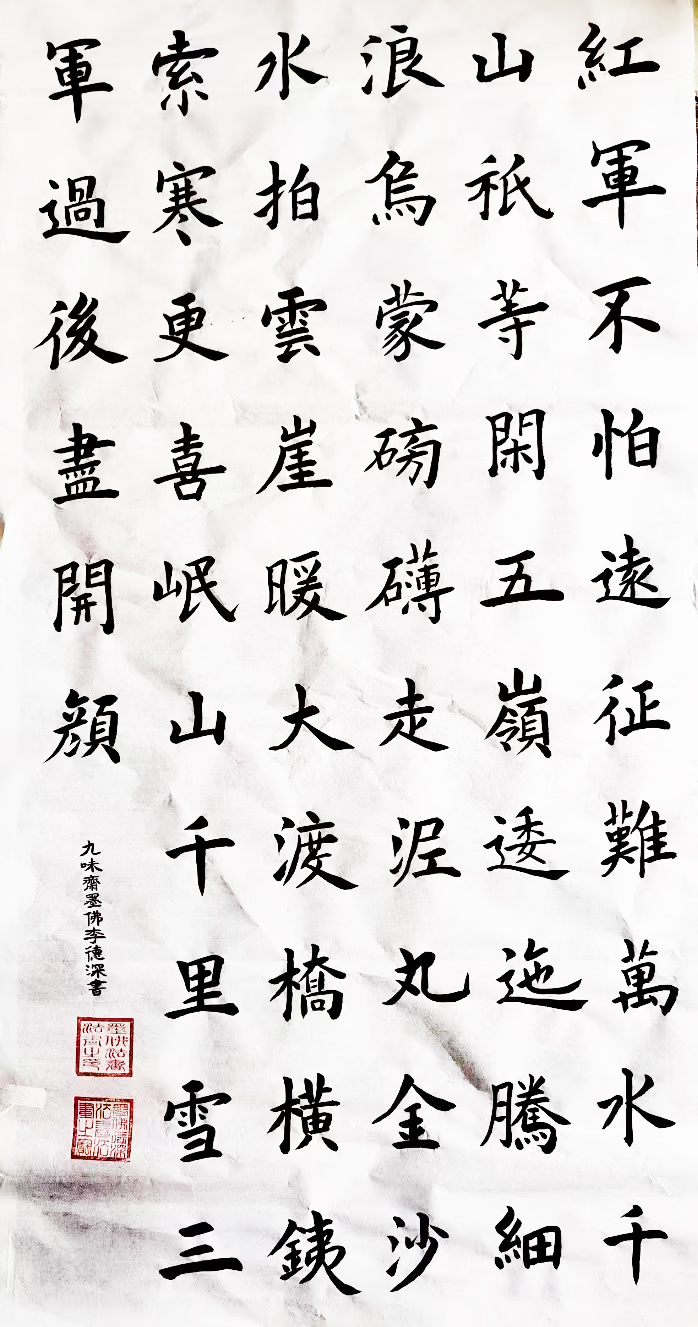 紅軍不怕遠征難萬水千
山祇等閑五嶺逶迤騰細
浪烏蒙磅礴走泥丸金沙
水拍雲崖暖大渡橋橫銕
索寒更喜岷山千里雪三
軍過後盡開顏
九味齋墨佛李德深書